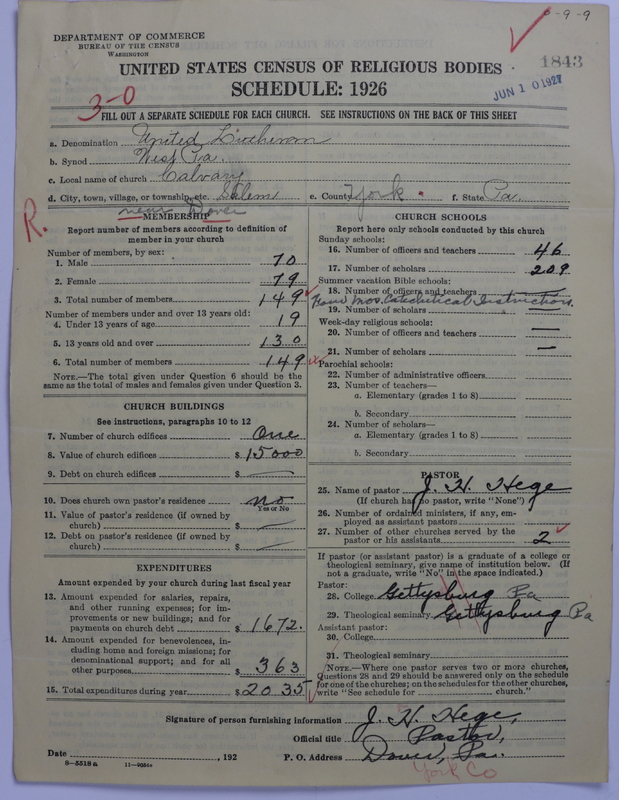 DEPARTMENT OF COMMERCE
BUREAU OF THE CENSUS
WASHINGTON
-9-9
1843
UNITED STATES CENSUS OF RELIGIOUS BODIES
SCHEDULE: 1926
JUN 10 1927
3-0
FILL OUT A SEPARATE SCHEDULE FOR EACH CHURCH. SEE INSTRUCTIONS ON THE BACK OF THIS SHEET
a. Denomination United Lutheran
b. Synod West Pa.
c. Local name of church Calvary
d. City, town, village, or township, etc. Salem e. County York f. State Pa.
near Dover
R.
MEMBERSHIP
Report number of members according to definition of member in your church
Number of members, by sex:
1. Male 70
2. Female 79
3. Total number of members 149
Number of members under and over 13 years old:
4. Under 13 years of age 19
5. 13 years old and over 130
6. Total number of members 149
NOTE.—The total given under Question 6 should be the same as the total of males and females given under Question 3.
CHURCH BUILDINGS
See instructions, paragraphs 10 to 12
7. Number of church edifices One
8. Value of church edifices $ 15000
9. Debt on church edifices $ —
10. Does church own pastor's residence no
Yes or No
11. Value of pastor's residence (if owned by church) $ —
12. Debt on pastor's residence (if owned by church) $ —
EXPENDITURES
Amount expended by your church during last fiscal year
13. Amount expended for salaries, repairs, and other running expenses; for improvements or new buildings; and for payments on church debt $ 1672.
14. Amount expended for benevolences, including home and foreign missions; for denominational support; and for all other purposes $ 363
15. Total expenditures during year $ 2035
CHURCH SCHOOLS
Report here only schools conducted by this church
Sunday schools:
16. Number of officers and teachers 46
17. Number of scholars 209
Summer vacation Bible schools:
18. Number of officers and teachers —
Mos. Catechetical Instruction
19. Number of scholars —
Week-day religious schools:
20. Number of officers and teachers —
21. Number of scholars —
Parochial schools:
22. Number of administrative officers
23. Number of teachers—
a. Elementary (grades 1 to 8)
b. Secondary
24. Number of scholars—
a. Elementary (grades 1 to 8)
b. Secondary
PASTOR
25. Name of pastor J. H. Hege
(If church has no pastor, write "None")
26. Number of ordained ministers, if any, employed as assistant pastors
27. Number of other churches served by the pastor or his assistants 2
If pastor (or assistant pastor) is a graduate of a college or theological seminary, give name of institution below. (If not a graduate, write "No" in the space indicated.)
Pastor:
28. College Gettysburg Pa
29. Theological seminary Gettysburg Pa
Assistant pastor:
30. College
31. Theological seminary
NOTE.—Where one pastor serves two or more churches, Questions 28 and 29 should be answered only on the schedule for one of the churches; on the schedules for the other churches, write "See schedule for church."
Signature of person furnishing information J. H. Hege,
Official title Pastor,
Date , 192 P. O. Address Dover, Pa.
York Co
8—5518a 11—9054a